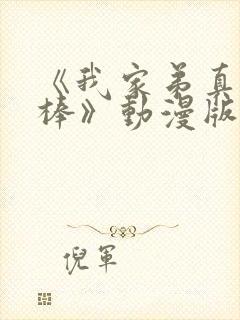 《我家弟真
棒》動漫版
倪軍